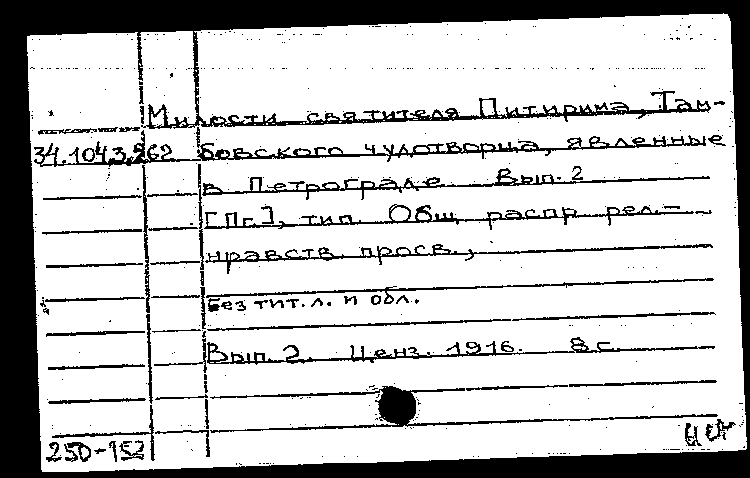 Милости святителя Питирима, Там-
34.104.3.262 бовского чудотворца, явленные
в Петрограде Вып. 2
[Пг.], тип. Общ распр рел.-
нравств. просв.,
Без тит.л. и обл.
Вып. 2. Ценз. 1916. 8 с.
250-152